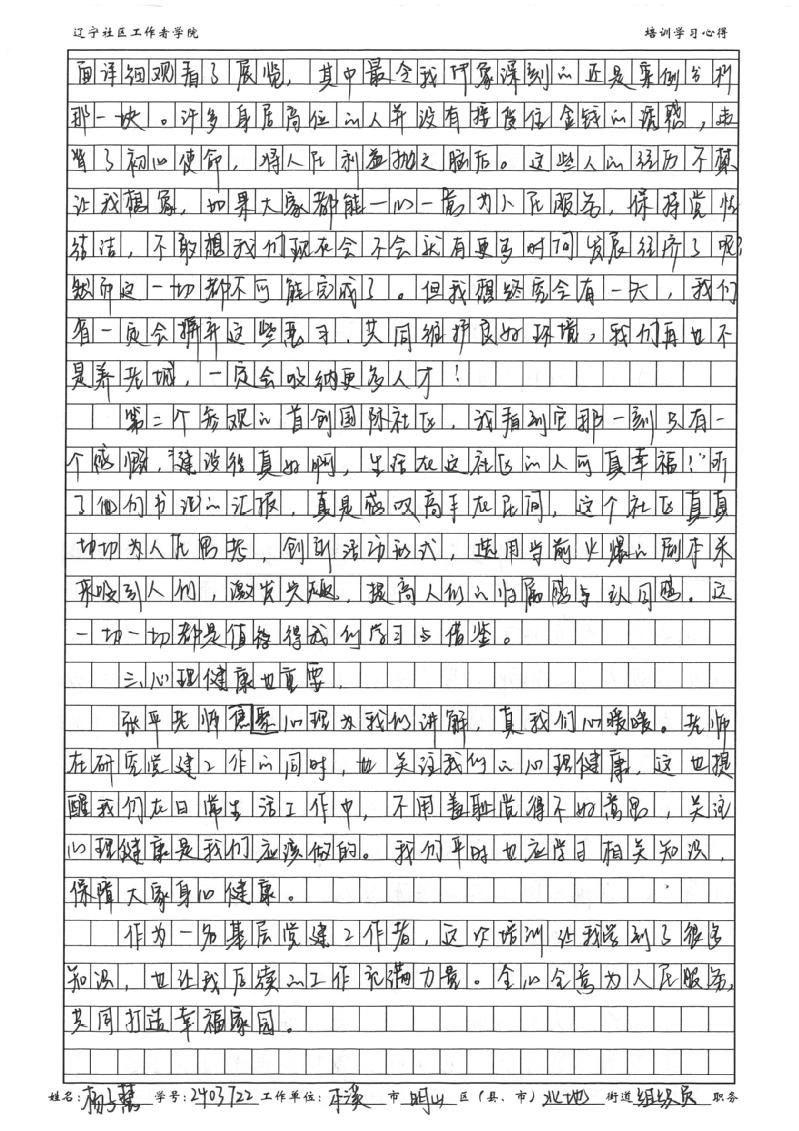 辽宁社区工作者学院 培训学习心得
面详细观看了展览，其中最令我印象深刻的还是案例分析
那一块。许多身居高位的人并没有接受住金钱的诱惑，违
背了初心使命，将人民利益抛之脑后。这些人的经历不禁
让我想象，如果大家都能一心一意为人民服务，保持党性
纯洁，不敢想我们现在会不会就有更多时间发展经济了呢？
然而这一切都不可能完成了。但我想终究会有一天，我们
有一定会摒弃这些恶习，共同维护良好环境，我们再也不
是养老城，一定会吸纳更多人才！
第二个参观的首创国际社区，我看到它那一刻只有一
个感慨，“建设得真好啊，生活在这社区的人可真幸福！”听
了他们书记的汇报，真是感叹高手在民间，这个社区真真
切切为人民思考，创新活动形式，选用当前火爆的剧本杀
来吸引人们，激发兴趣，提高人们的归属感与认同感。这
一切一切都是值得得我们学习与借鉴。
三、心理健康也重要，
张平老师 心理为我们讲解，真我们心暖暖。老师
在研究党建工作的同时，也关注我们的心理健康，这也提
醒我们在日常生活工作中，不用羞耻觉得不好意思，关注
心理健康是我们应该做的。我们平时也应学习相关知识，
保障大家身心健康。
作为一名基层党建工作者，这次培训让我学到了很多
知识，也让我后续的工作充满力量。全心全意为人民服务，
共同打造幸福家园。
姓名：杨 慧 学号：2403722 工作单位：本溪 市 明山 区（县、市） 北地 街道 组织员 职务